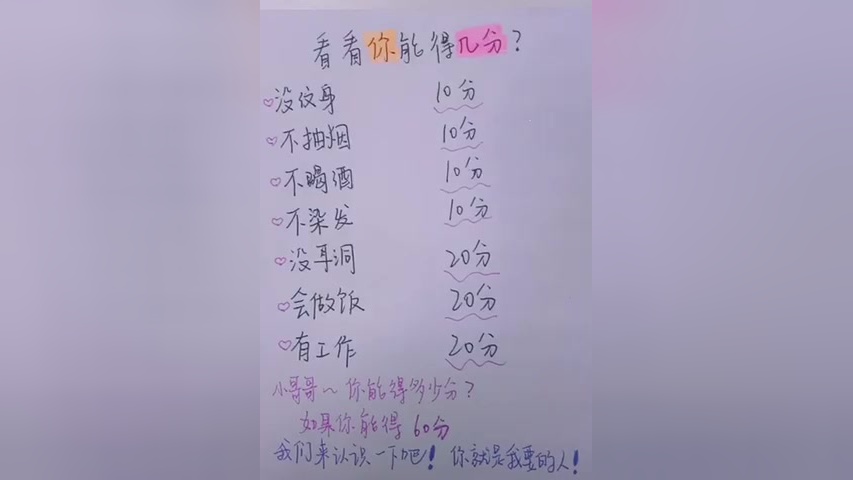 看看你能得几分?
没纹身 10分
不抽烟 10分
不喝酒 10分
不染发 10分
没耳洞 20分
会做饭 20分
有工作 20分
小哥哥~你能得多少分?
如果你能得60分
我们来认识一下吧!你就是我要的人!